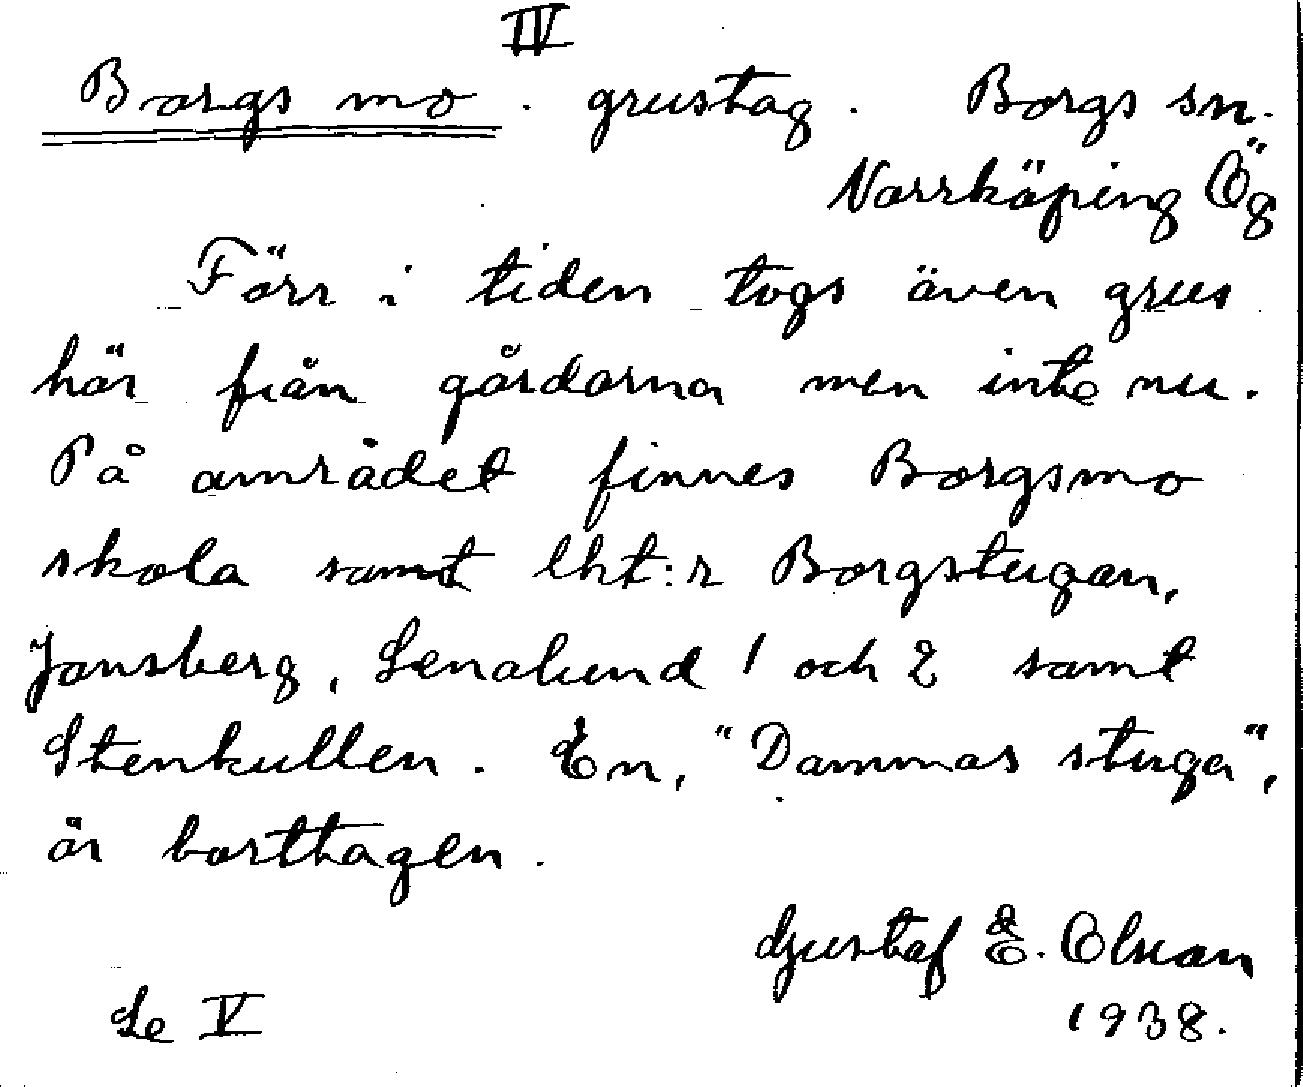 IV
Borgs mo. grustag. Borgs sn.
Norrköping Ög
Förr i tiden togs även grus
här från gårdarna men inte nu.
På området finnes Borgsmo
skola samt lht:r Borgstugan,
Jonsberg, Lenalund 1 och 2 samt
Stenkullen. En, "Dammas stuga",
är borttagen.
Gustaf E. Olson
Se V 1938.